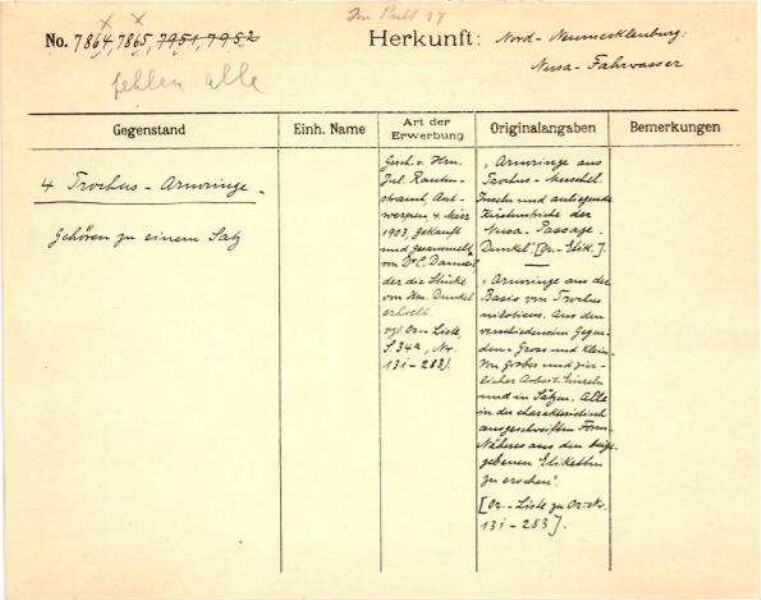 No. 7864, 7865, 7951, 7952
Herkunft: Nord-Neumecklenburg:
Nusa-Fahrwasser
fehlen alle
Gegenstand
Einh. Name
Art der
Erwerbung
Originalangaben
Bemerkungen
4 Trochus-Armringe.
Gehören zu einem Satz
Gesch. v. Hrn.
Jul. Rauten-
strauch, Ant-
werpen, 4. März
1903, gekauft
und gesammelt
von Dr C. Danneil
der die Stücke
von Hrn. Dunkel
erhielt.
vgl. Or-Liste,
S. 34a, Nr.
131-283).
"Armringe aus
Trochus-Muschel.
Inseln und anliegende
Küstenstriche der
Nusa-Passage.
Dunkel". [Or.-Etik.].
"Armringe aus der
Basis von Trochus
niloticus. Aus den
verschiedensten Gegen-
den. Gross und klein.
Von grober und zier-
licher Arbeit. Einzeln
und in Sätzen. Alle
in der charakteristisch
ausgeschweiften Form.
Näheres aus den beige-
gebenen Etiketten
zu ersehen".
[Or.-Liste zu Or.-Nr.
131-283].